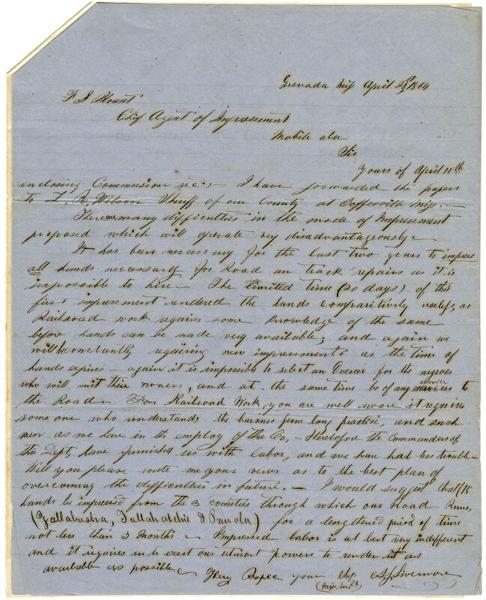 Grenada Miss April 1864
F S Blount
Chf Agent of Impressment
Mobile ala
Sir
Yours of April 10th
enclosing Commission rec'd I have forwarded the papers
to Sheriff of our County at Coffeeville Miss.
There are many difficulties in the mode of Impressment
proposed which will operate very disadvantageously
It has been necessary for the last two years to impress
all hands necessary for Road and track repairs as it is
impossible to hire – The limited time (30 days) of this
first impressment rendered the hands comparitively useless, as
Railroad work requires some knowledge of the same
before hands can be made very available, and again we
will be constantly requiring new impressments as the time of
hands expires – again it is impossible to select an Overseer for the negroes
who will suit their owners, and at the same time be of any service to
the Road – For Railroad Work, you are well aware it requires
some one who understands the business from long practice, and such
men as we have in the employ of the Co, – Heretofore the Commanders of
the Dept, have furnished us with labor, and we have had less trouble –
Will you please write me your views as to the best plan of
overcoming the difficulties in future. – I would suggest that
hands be impressed from the 3 counties through which our Road Runs,
(Yallabusha, Tallahatchie & Panola) for a lengthened period of time
not less than 3 months – Impressed labor is at best very indifferent
and it requires us to exert our utmost powers to render it as
available as possible – Very Respec your Obt